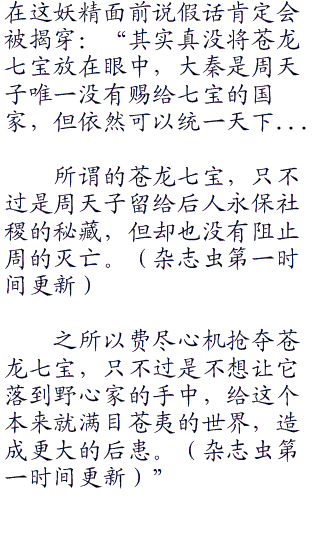 在这妖精面前说假话肯定会
被揭穿：“其实真没将苍龙
七宝放在眼中，大秦是周天
子唯一没有赐给七宝的国
家，但依然可以统一天下...
所谓的苍龙七宝，只不
过是周天子留给后人永保社
稷的秘藏，但却也没有阻止
周的灭亡。（杂志虫第一时
间更新）
之所以费尽心机抢夺苍
龙七宝，只不过是不想让它
落到野心家的手中，给这个
本来就满目苍夷的世界，造
成更大的后患。（杂志虫第
一时间更新）”